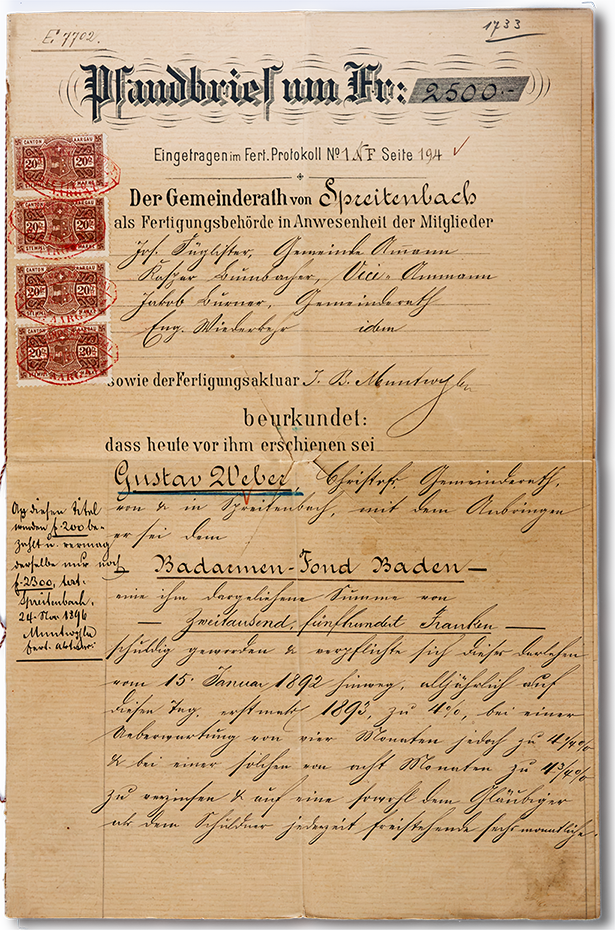 E. 7702.
1733
Pfandbrief um Fr: 2500.-
Eingetragen im Fert. Protokoll No Seite 194
Der Gemeinderath von Spreitenbach
als Fertigungsbehörde in Anwesenheit der Mitglieder
Jos. Füglister, Gemeinde Amann
Kaspar Bumbacher, Vice-Ammann
Jakob Gemeinderath
Eug. Wiederkehr idem
CANTON AARGAU
20 20
STEMPEL MARKE
CANTON AARGAU
20 20
STEMPEL MARKE
CANTON AARGAU
20 20
STEMPEL MARKE
CANTON AARGAU
20 20
STEMPEL MARKE
sowie der Fertigungsaktuar J. B. Muntwyler
beurkundet:
dass heute vor ihm erschienen sei
Gustav Weber, Gemeinderath,
von & in Spreitenbach, mit dem Anbringen
er sei dem
Badarmen-Fond Baden
eine ihm dargeliehene Summe von
Zweitausend, fünfhundert Franken
schuldig geworden & verpflichte sich dieses Darlehen
vom 15. Januar 1892 hinweg, alljährlich auf
diesen Tag, erstmals 1893, zu 4%, bei einer
Ueberwartung von vier Monaten jedoch zu 4 1/4 %
& bei einer solchen von acht Monaten zu 4 3/4 %
zu verzinsen & auf eine sowohl dem Gläubiger
als dem Schuldner jederzeit freistehende sechsmonatliche
An diesen Titel
wurden f. 200 be-
zahlt u. vermag
derselbe nur noch
f. 2300,
Spreitenbach,
24. Nov. 1896
Muntwyler
Fert. Aktuar.